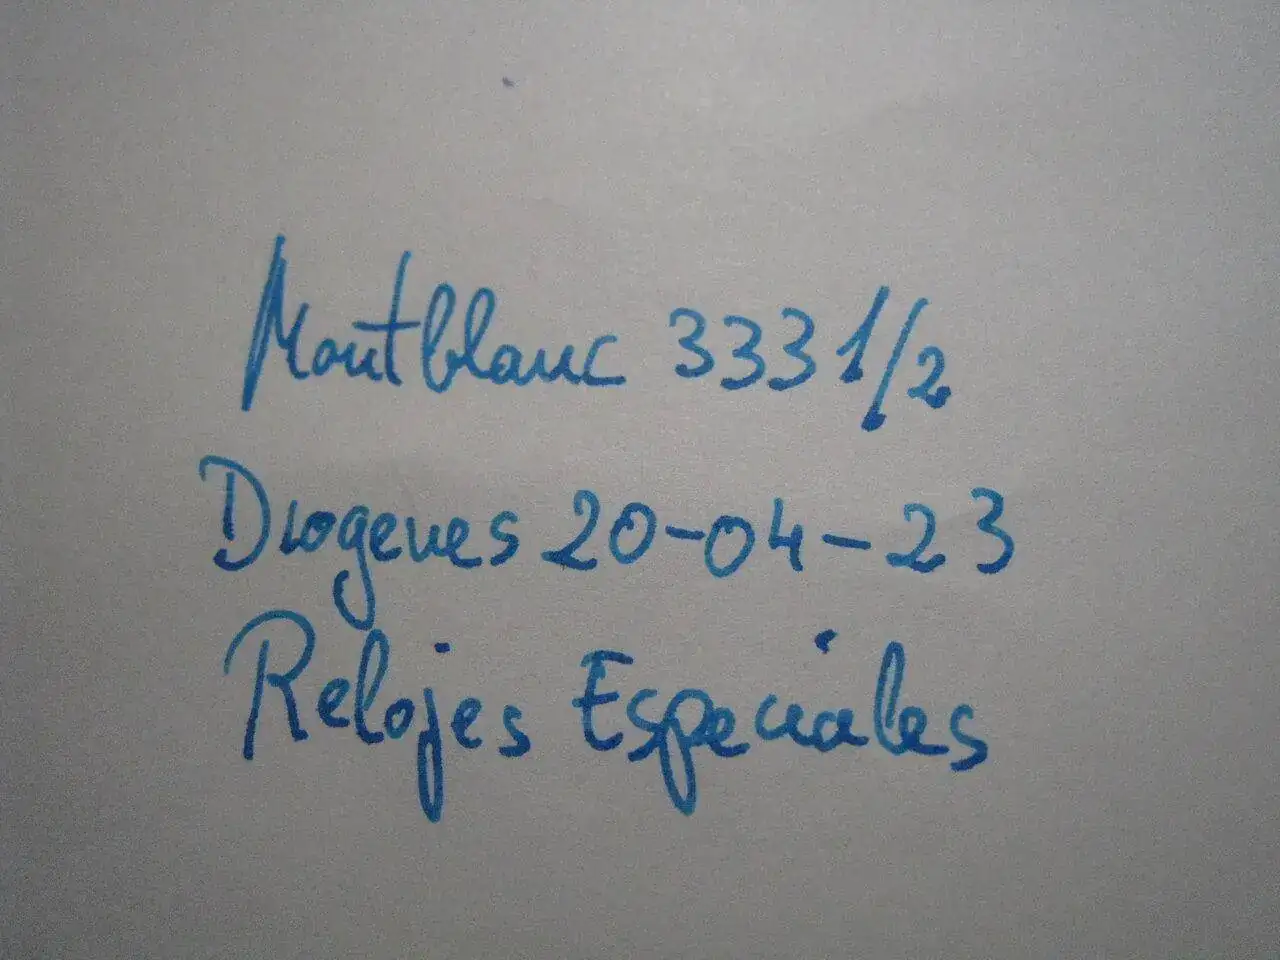 Montblanc 333 1/2
Diogenes 20-04-23
Relojes Especiales